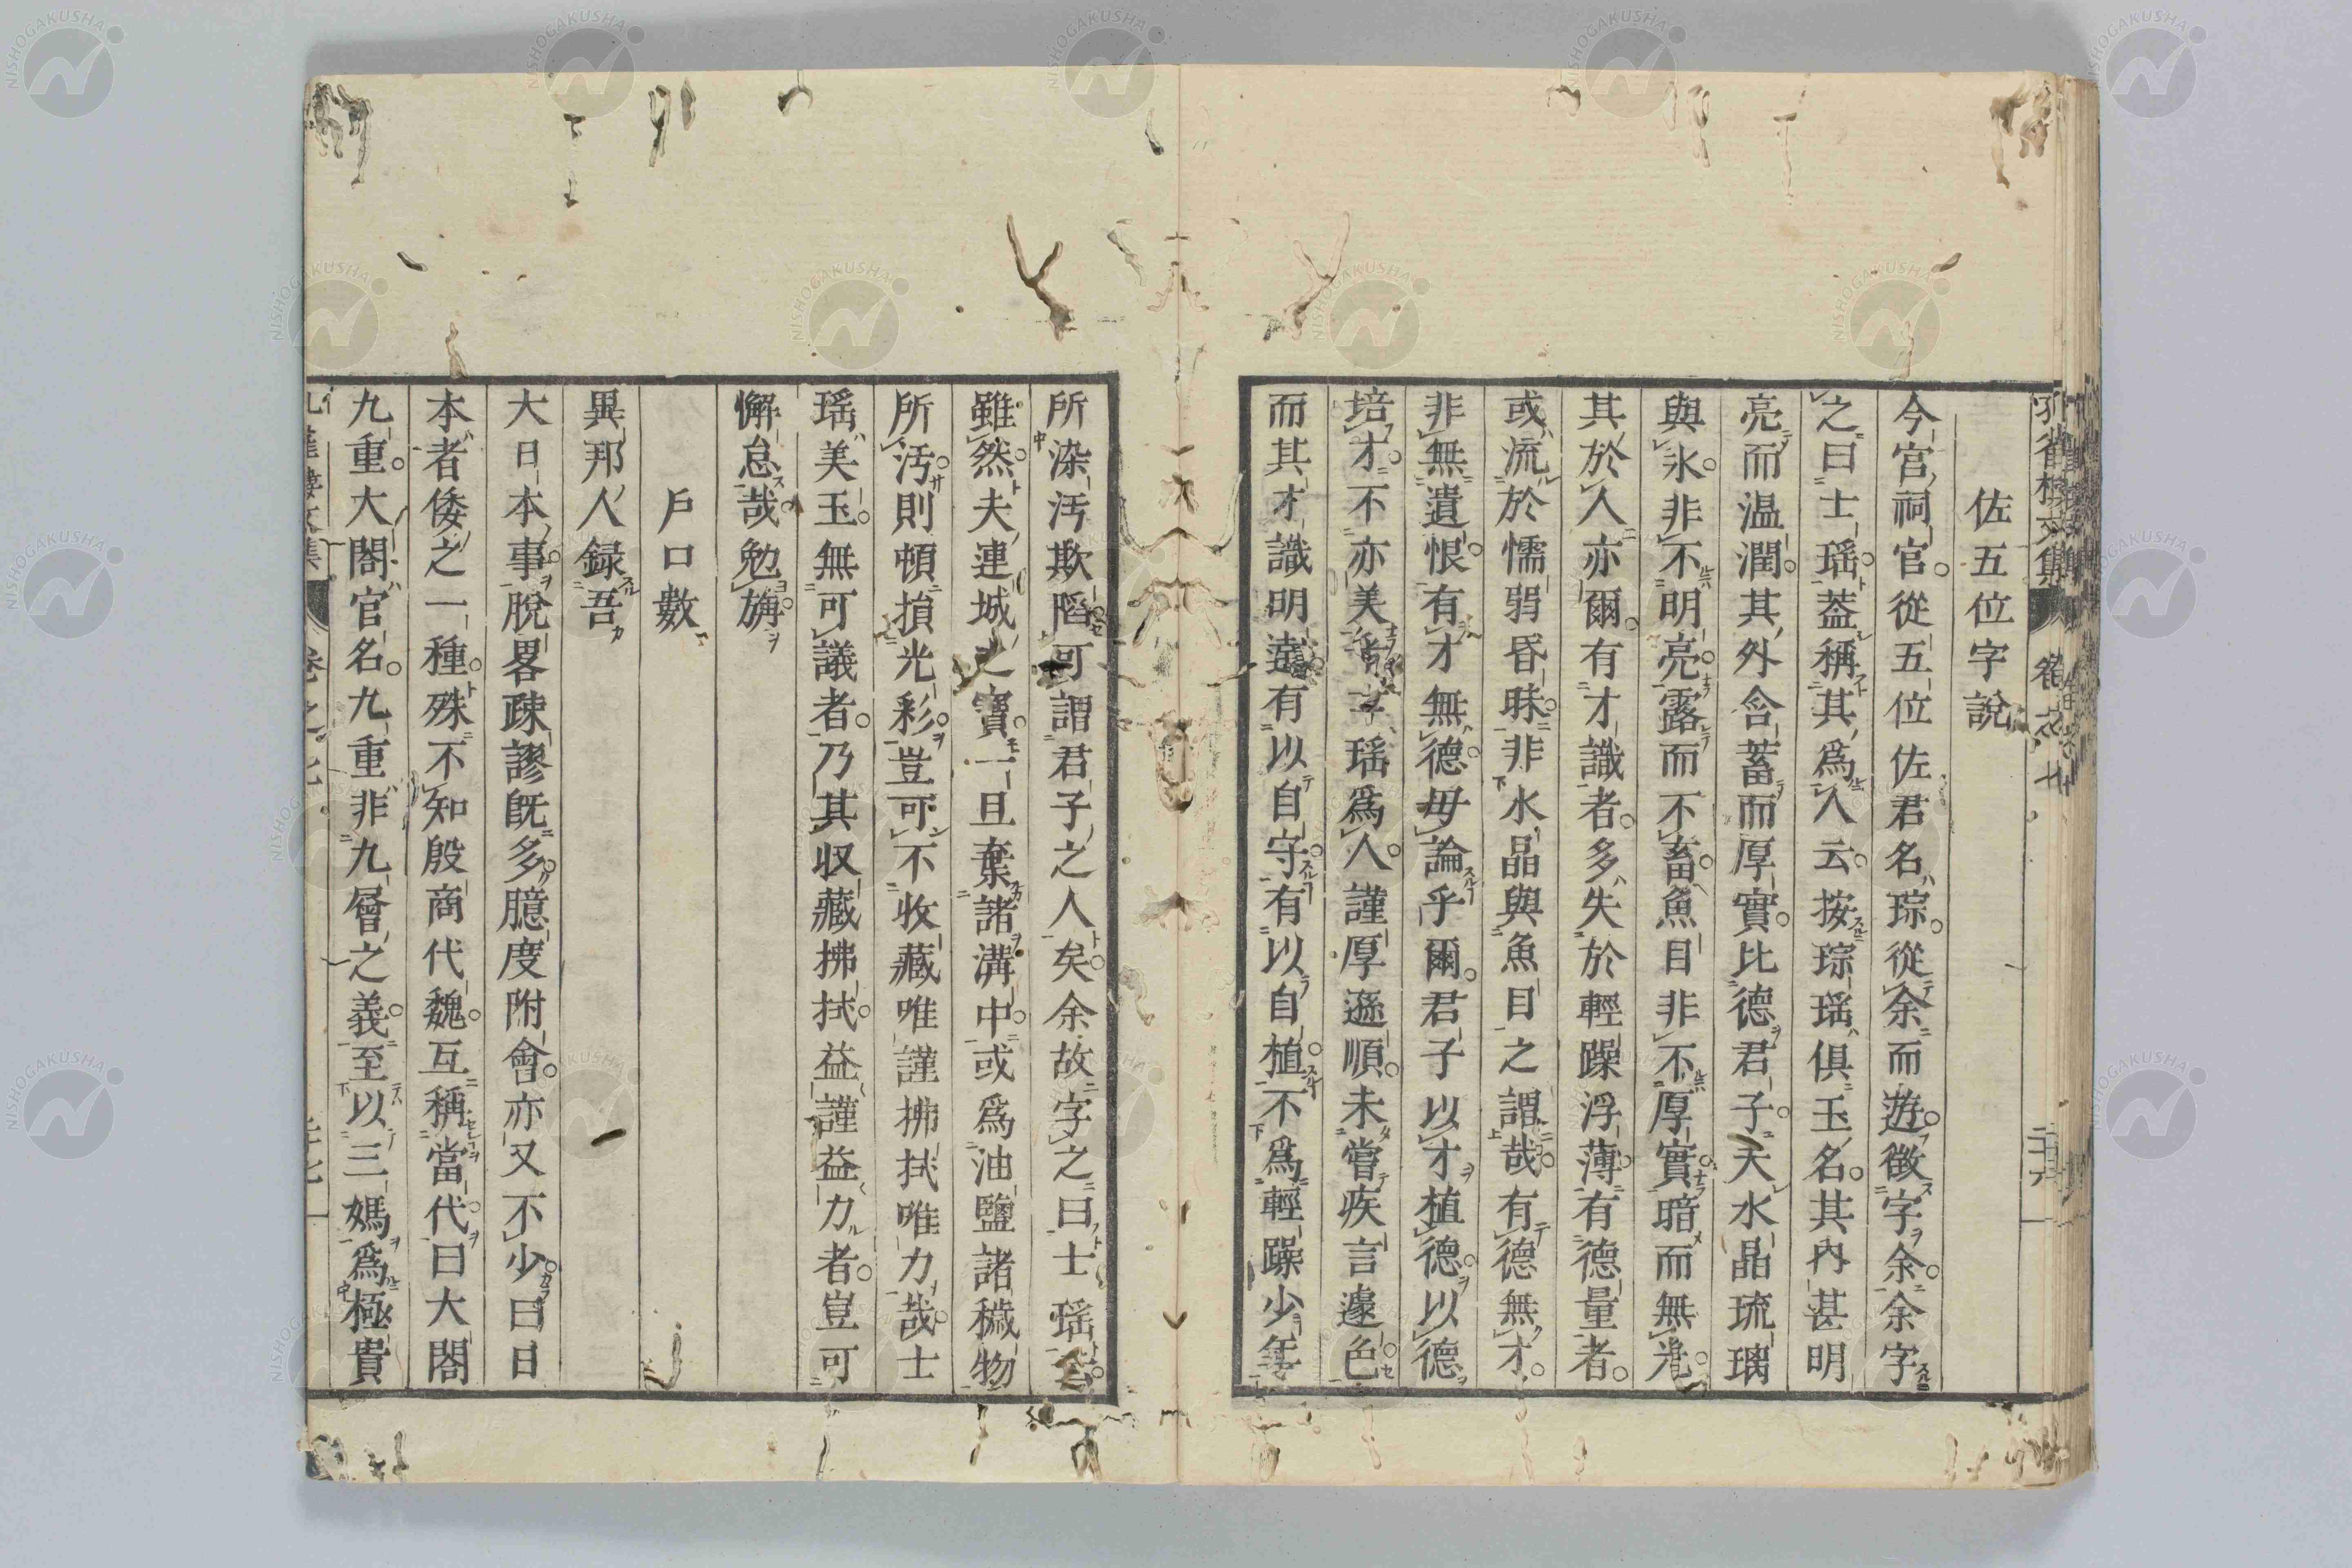 佐五位字說
今官祠官從五位佐君名琮從余而遊徵字余余字
之曰士瑶葢稱其爲人云按琮瑶俱玉名其內甚明
亮而温潤其外含蓄而厚實比德君子天水晶琉璃
與氷非不明亮露而不畜魚目非不厚實暗而無光
其於人亦爾有才識者多失於輕躁浮薄有德量者
或流於懦弱昏昧非水晶與魚目之謂哉有德無才
非無遺恨有才無德毋論乎爾君子以才植德以德
培才不亦美乎士瑶爲人謹厚遜順未嘗疾言遽色
而其才識明達有以自守有以自植不爲輕躁少年
所染汚欺陷可謂君子之人矣余故字之曰士瑶
雖然夫連城之寶一旦棄諸溝中或爲油鹽諸穢物
所汚則頓損光彩豈可不收藏唯謹拂拭唯力哉士
瑶美玉無可議者乃其収藏拂拭益謹益力者豈可
懈怠哉勉旃
戶口數
異邦人録吾
大日本事脫畧疎謬旣多臆度附會亦又不少曰日
本者倭之一種殊不知殷商代魏互稱當代曰大閤
九重大閤官名九重非九層之義至以三媽爲極貴
NISHOGAKUSHA